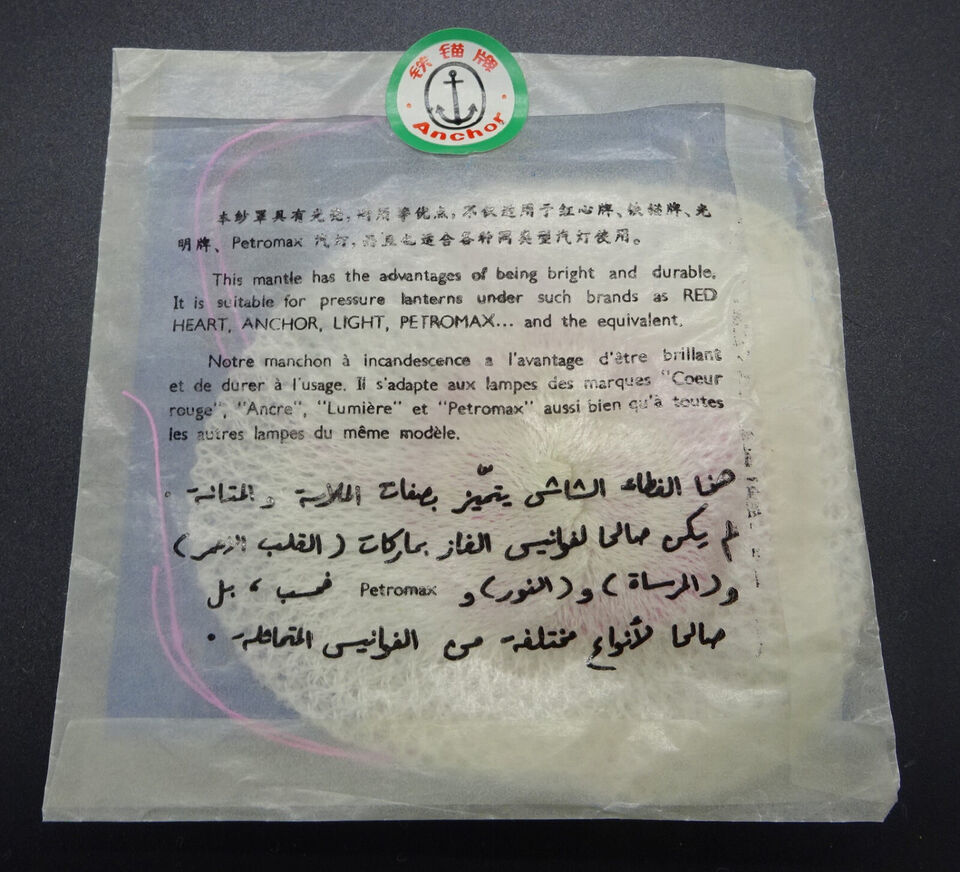 铁锚牌
Anchor
本纱罩具有光亮,耐用等优点,不仅适用于红心牌、铁锚牌、光
明牌、Petromax 汽灯,而且也适合各种同类型汽灯使用。
This mantle has the advantages of being bright and durable.
It is suitable for pressure lanterns under such brands as RED
HEART, ANCHOR, LIGHT, PETROMAX... and the equivalent.
Notre manchon à incandescence a l'avantage d'être brillant
et de durer à l'usage. Il s'adapte aux lampes des marques "Coeur
rouge", "Ancre", "Lumière" et "Petromax" aussi bien qu'à toutes
les autres lampes du même modèle.
هذا الغطاء الشاشى يتميّز بصفات الملاسة والمتانة .
لم يكن صالحا لفوانيس الغاز بماركات (القلب الاحمر)
و(المرساة) و(النور) و Petromax فحسب ، بل
صالحا لأنواع مختلفة من الفوانيس المتماثلة .